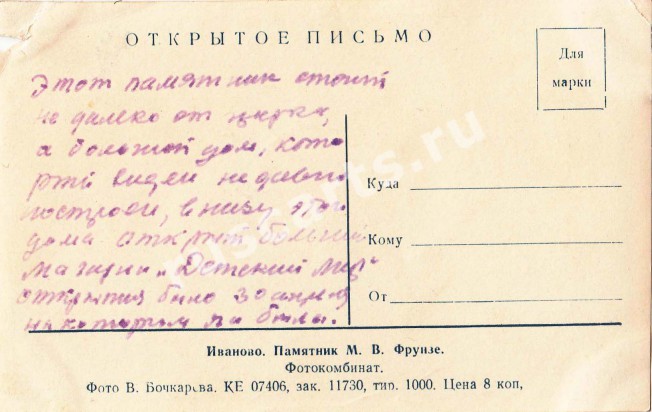 ОТКРЫТОЕ ПИСЬМО
Для
марки
Этот памятник стоит
не далеко от цирка,
а большой дом, кото
рый виден недавно
построен, внизу этого
дома открыт большой
магазин „Детский мир"
открытия было 30 апреля
на котором я была.
Куда
Кому
От
Иваново. Памятник М. В. Фрунзе.
Фотокомбинат.
Фото В. Бочкарева. КЕ 07406, зак. 11730, тир. 1000. Цена 8 коп,